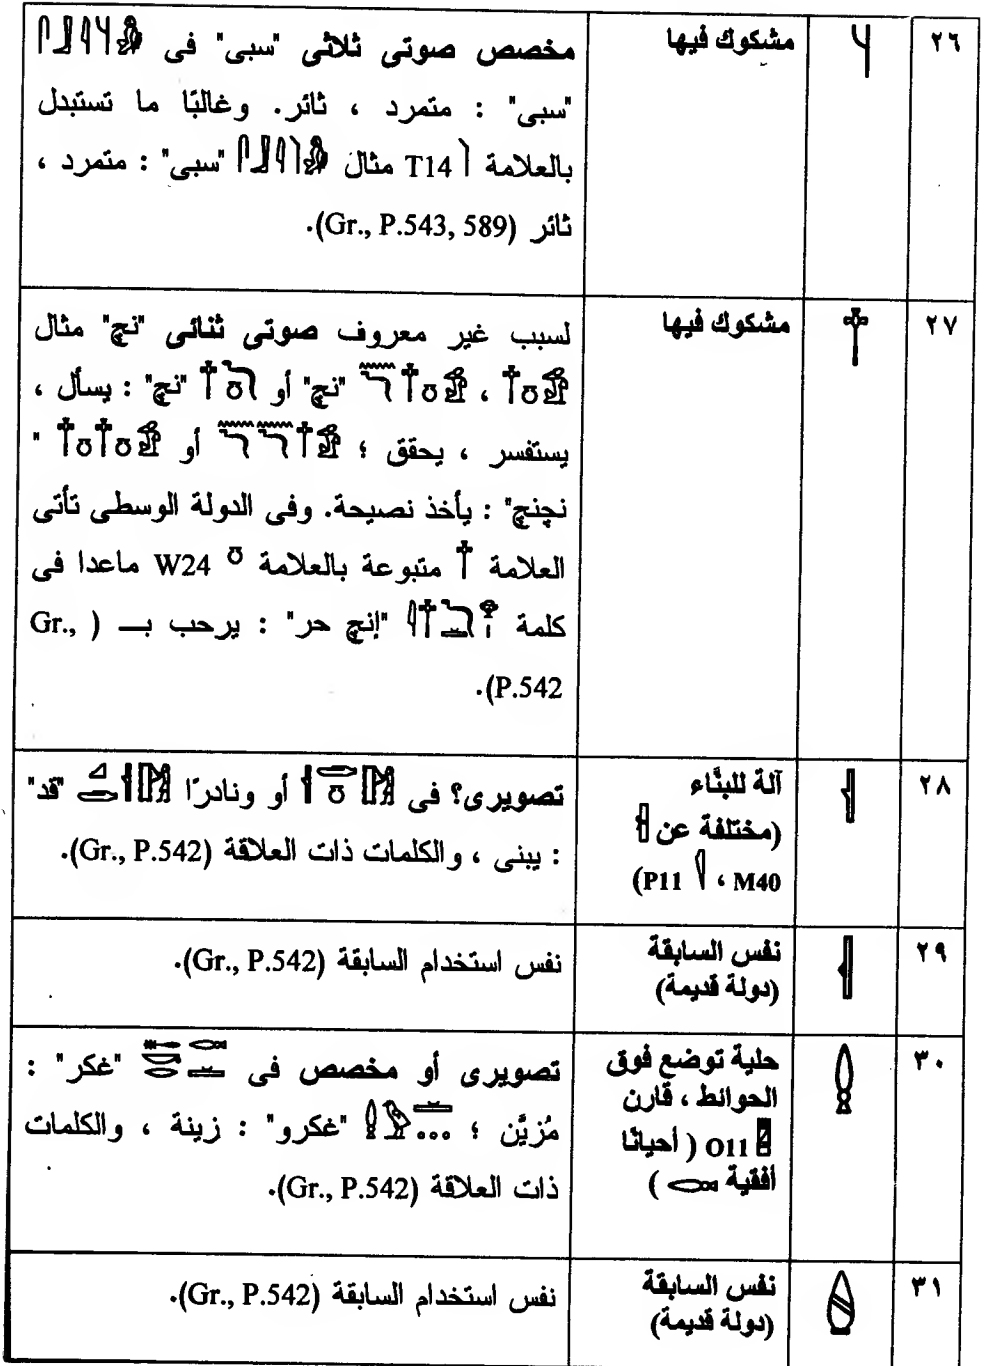 ٢٦ مشكوك فيها مخصص صوتى ثلاثى "سبى" فى
"سبى" : متمرد ، ثائر. وغالبًا ما تستبدل
بالعلامة T14 مثال "سبى" : متمرد ،
ثائر (Gr., P.543, 589).
٢٧ مشكوك فيها لسبب غير معروف صوتى ثنائى "نچ" مثال
، "نچ" أو "نچ" : يسأل ،
يستفسر ، يحقق ؛ أو "
نچنچ" : يأخذ نصيحة. وفى الدولة الوسطى تأتى
العلامة متبوعة بالعلامة W24 ماعدا فى
كلمة "إنچ حر" : يرحب بـــ ( Gr.,
P.542).
٢٨ آلة للبنَّاء
(مختلفة عن
M40 ، P11)
تصويرى؟ فى أو ونادرًا "قد"
: يبنى ، والكلمات ذات العلاقة (Gr., P.542).
٢٩ نفس السابقة
(دولة قديمة)
نفس استخدام السابقة (Gr., P.542).
٣٠ حلية توضع فوق
الحوائط ، قارن
O11 ( أحيانًا
أفقية )
تصويرى أو مخصص فى "غكر" :
مُزيَّن ؛ "غكرو" : زينة ، والكلمات
ذات العلاقة (Gr., P.542).
٣١ نفس السابقة
(دولة قديمة)
نفس استخدام السابقة (Gr., P.542).